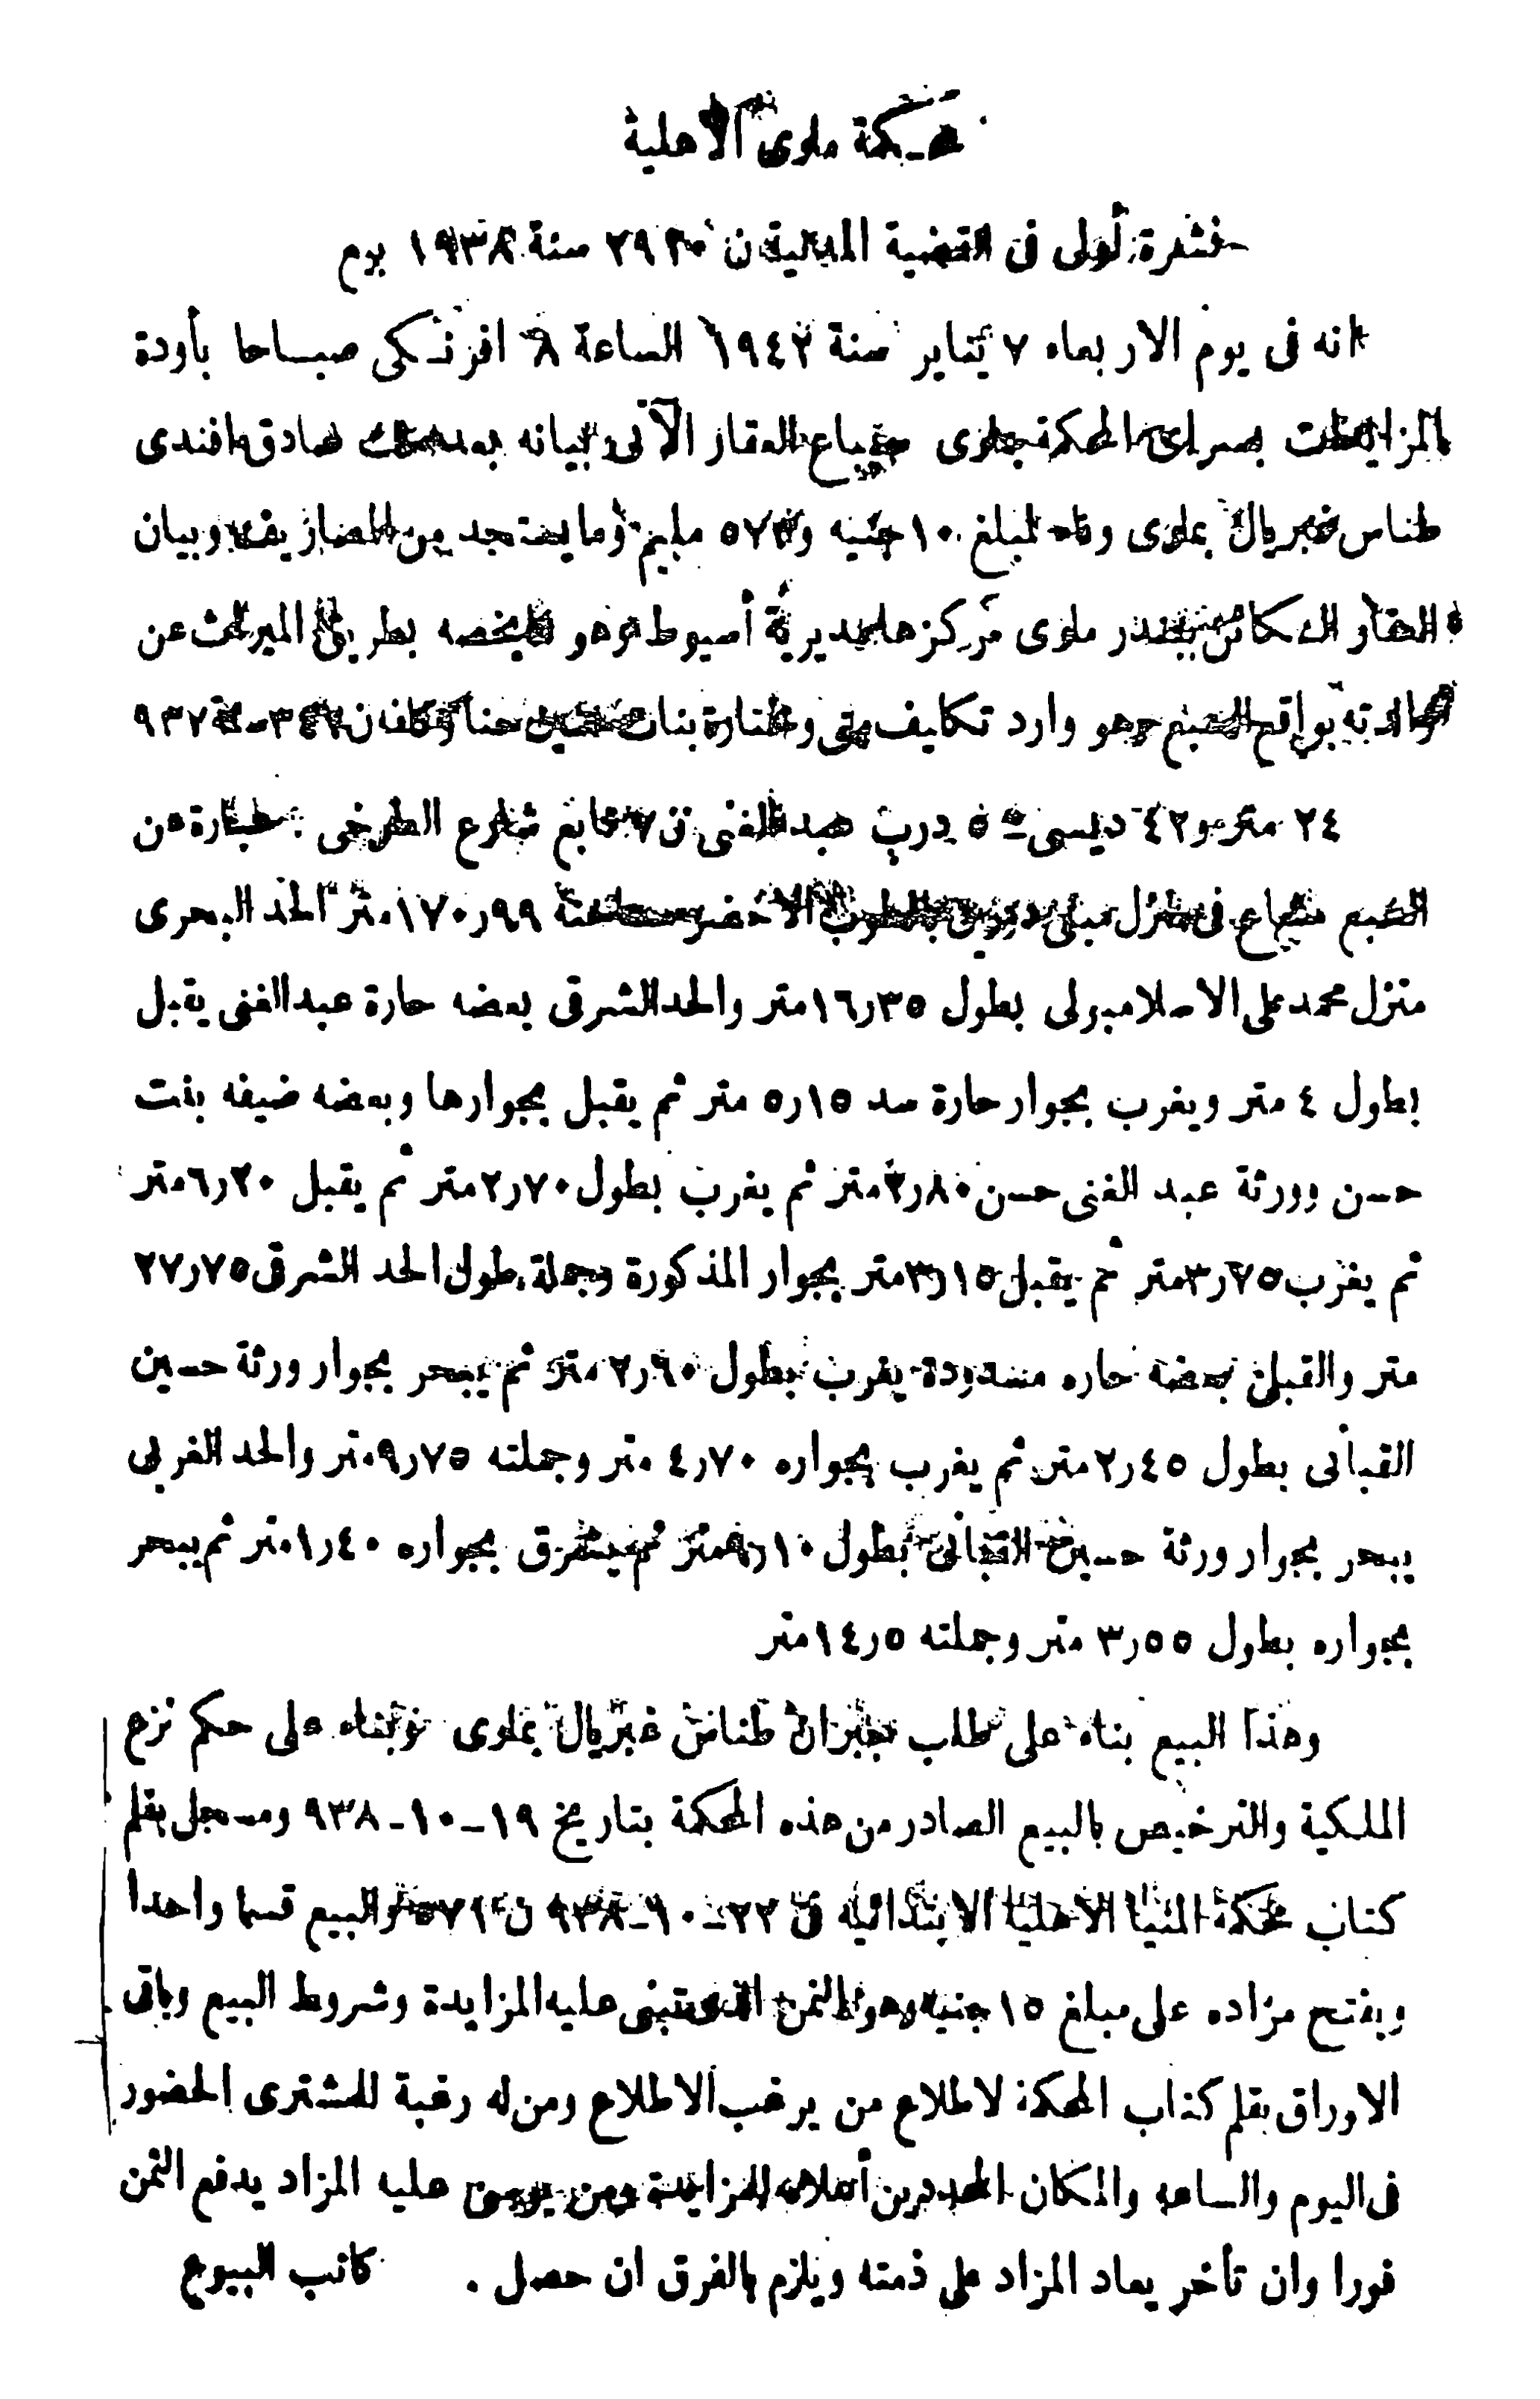 محكمة ملوى الاهلية
نشرة أولى فى القضية المدنية ن سنة ١٩٣٨ يوم
انه فى يوم الاربعاء ٧ يناير سنة ١٩٤٢ الساعة ٨ افرنكى صباحا بأودة
المزايدات بسراى المحكمة بملوى سيباع العقار الآتى بيانه بعد صادق افندى
طناس غبريال بملوى وفاء لمبلغ ١٠ جنيه و ٥٧٣ مليم وما يستجد من المصاريف وبيان
العقار الكائن ببندر ملوى مركزها مديرية أسيوط وهو ما يخصه بطريق الميراث عن
والدته بواقع السبع وهو وارد تكليف ومختارة بنات حنا سنة ٩٣٧
٢٤ متر و ٤٢ ديسى درب عبد الغنى ن ٧ تابع شارع عبارة عن
السبع مشاع فى منزل مبنى دورين بالطوب الاخضر مسطحه ١٧٠ر٩٩ متر الحد البحرى
منزل محمد على الاسلامبولى بطول ١٦ر٣٥ متر والحد الشرقى بعضه حارة عبد الغنى يقبل
بطول ٤ متر ويغرب بجوار حارة سد ٥ر١٥ متر ثم يقبل بجوارها وبعضه ضيفه بنت
حسن وورثة عبد الغنى حسن متر ثم يغرب بطول ٢ر٧٠ متر ثم يقبل ٦ر٢٠ متر
ثم يغرب ٣ر٧٥ متر ثم يقبل ٣ر١٥ متر بجوار المذكورة وجملة طول الحد الشرقى ٢٧ر٧٥
متر والقبلى بعضه حاره مسدودة يغرب بطول ٢ر٦٠ متر ثم يبحر بجوار ورثة حسين
القبانى بطول ٢ر٤٥ متر ثم يغرب بجواره ٤ر٧٠ متر وجملته ٩ر٧٥ متر والحد الغربى
يبحر بجوار ورثة حسين القبانى بطول ٩ر١٠ متر ثم يشرق بجواره ١ر٤٠ متر ثم يبحر
بجواره بطول ٣ر٥٥ متر وجملته ١٤ر٥ متر
وهذا البيع بناء على طلب جبران طناس غبريال بملوى وبناء على حكم نزع
الملكية والترخيص بالبيع الصادر من هذه المحكمة بتاريخ ١٩-١٠-٩٣٨ ومسجل بقلم
كتاب محكمة المنيا الاهليا الابتدائيه فى ٢٢-١٠-٩٣٨ ن والبيع قسما واحدا
ويفتح مزاده على مبلغ ١٥ جنيه وهو الثمن الذى تبنى عليه المزايدة وشروط البيع وباقى
الاوراق بقلم كتاب المحكمة لاطلاع من يرغب الاطلاع ومن له رغبة للمشترى الحضور
فى اليوم والساعه والمكان المحددين أعلاه للمزايدة ومن يرسى عليه المزاد يدفع الثمن
فورا وان تأخر يعاد المزاد على ذمته ويلزم بالفرق ان حصل . كاتب البيوع